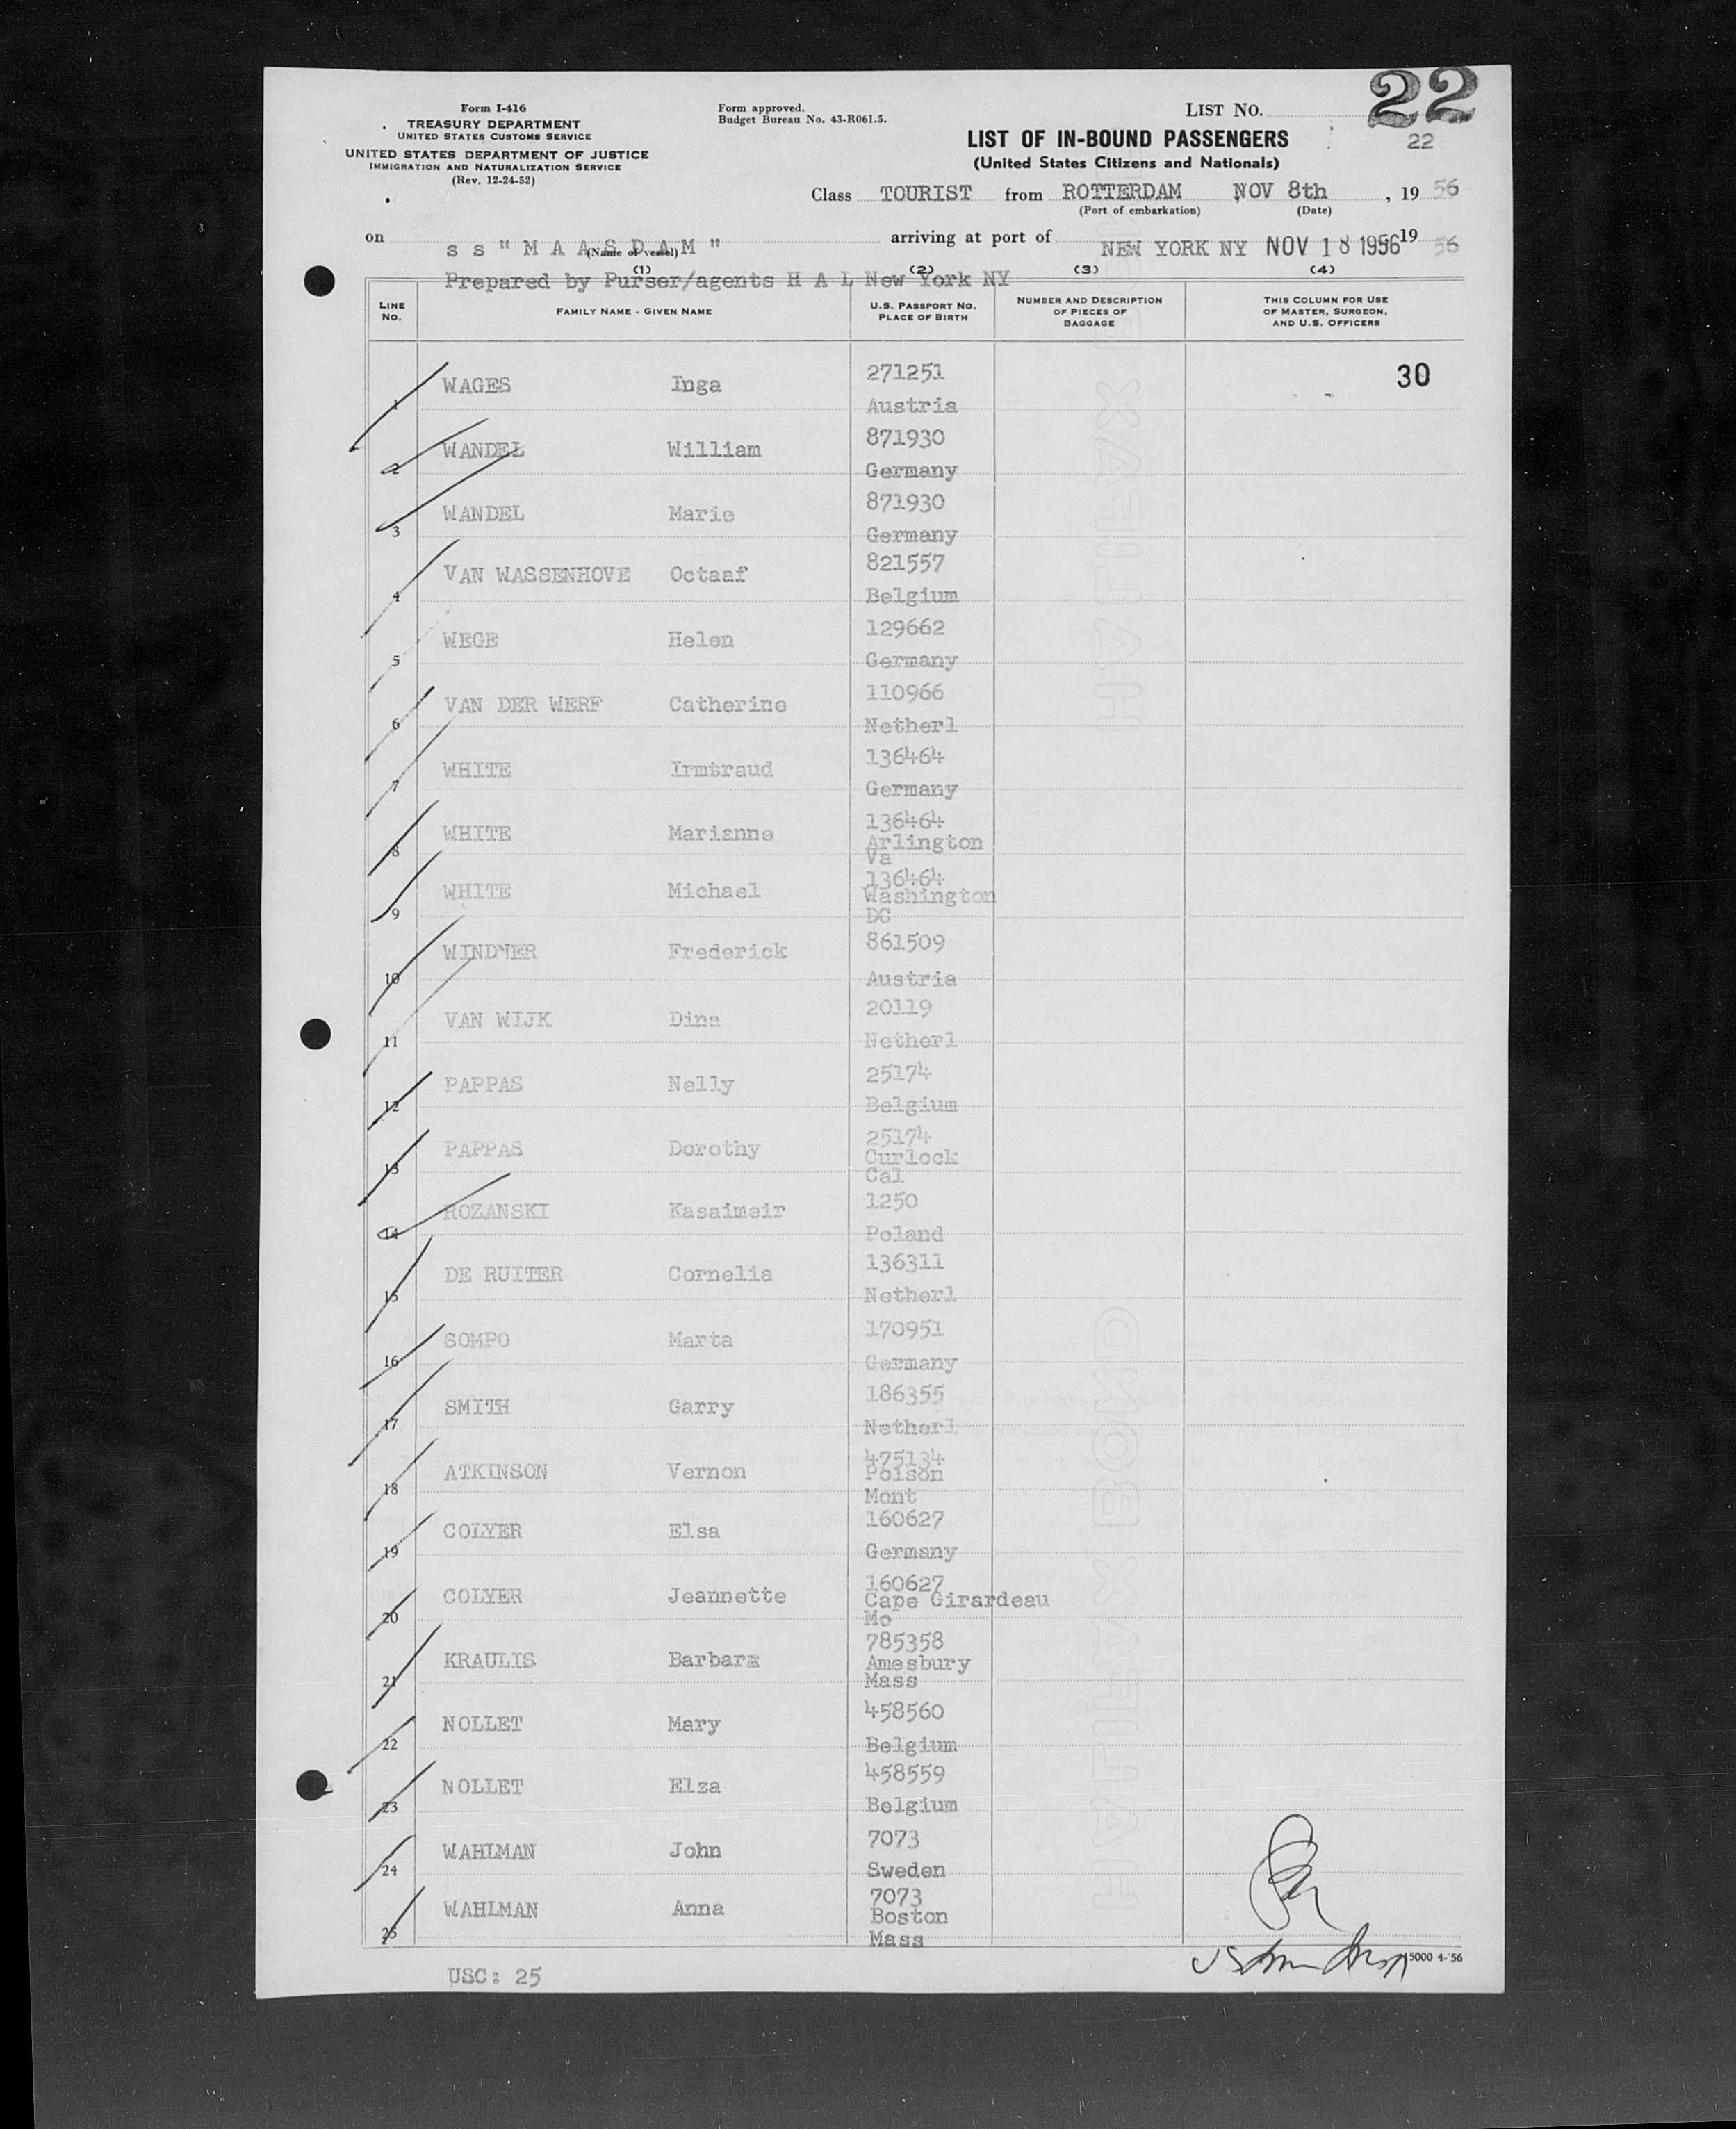 Form I-416
TREASURY DEPARTMENT
UNITED STATES CUSTOMS SERVICE
UNITED STATES DEPARTMENT OF JUSTICE
IMMIGRATION AND NATURALIZATION SERVICE
(Rev. 12-24-52)
Form approved.
Budget Bureau No. 43-R061.5.
LIST NO. 22
LIST OF IN-BOUND PASSENGERS 22
(United States Citizens and Nationals)
Class TOURIST from ROTTERDAM NOV 8th , 19 56
(Port of embarkation) (Date)
on s s " M A A S D A M " arriving at port of NEW YORK NY NOV 18 1956 19 56
(Name of vessel)
(1) (2) (3) (4)
Prepared by Purser/agents H A L New York NY
LINE NO. FAMILY NAME - GIVEN NAME U.S. PASSPORT NO. PLACE OF BIRTH NUMBER AND DESCRIPTION OF PIECES OF BAGGAGE THIS COLUMN FOR USE OF MASTER, SURGEON, AND U.S. OFFICERS
30
1 WAGES Inga 271251
Austria
2 WANDEL William 871930
Germany
3 WANDEL Marie 871930
Germany
4 VAN WASSENHOVE Octaaf 821557
Belgium
5 WEGE Helen 129662
Germany
6 VAN DER WERF Catherine 110966
Netherl
7 WHITE Irmtraud 136464
Germany
8 WHITE Marianne 136464
Arlington
Va
9 WHITE Michael 136464
Washington
DC
10 WINDNER Frederick 861509
Austria
11 VAN WIJK Dina 20119
Netherl
12 PAPPAS Nelly 25174
Belgium
13 PAPPAS Dorothy 25174
Curlock
Cal
14 ROZANSKI Kasaimeir 1250
Poland
15 DE RUITER Cornelia 136311
Netherl
16 SOMPO Marta 170951
Germany
17 SMITH Garry 186355
Netherl
18 ATKINSON Vernon 475134
Polson
Mont
19 COLYER Elsa 160627
Germany
20 COLYER Jeannette 160627
Cape Girardeau
Mo
21 KRAULIS Barbara 785358
Amesbury
Mass
22 NOLLET Mary 458560
Belgium
23 NOLLET Elza 458559
Belgium
24 WAHLMAN John 7073
Sweden
25 WAHLMAN Anna 7073
Boston
Mass
5000 4-'56
USC: 25
HALIFAX BOND
HALIFAX